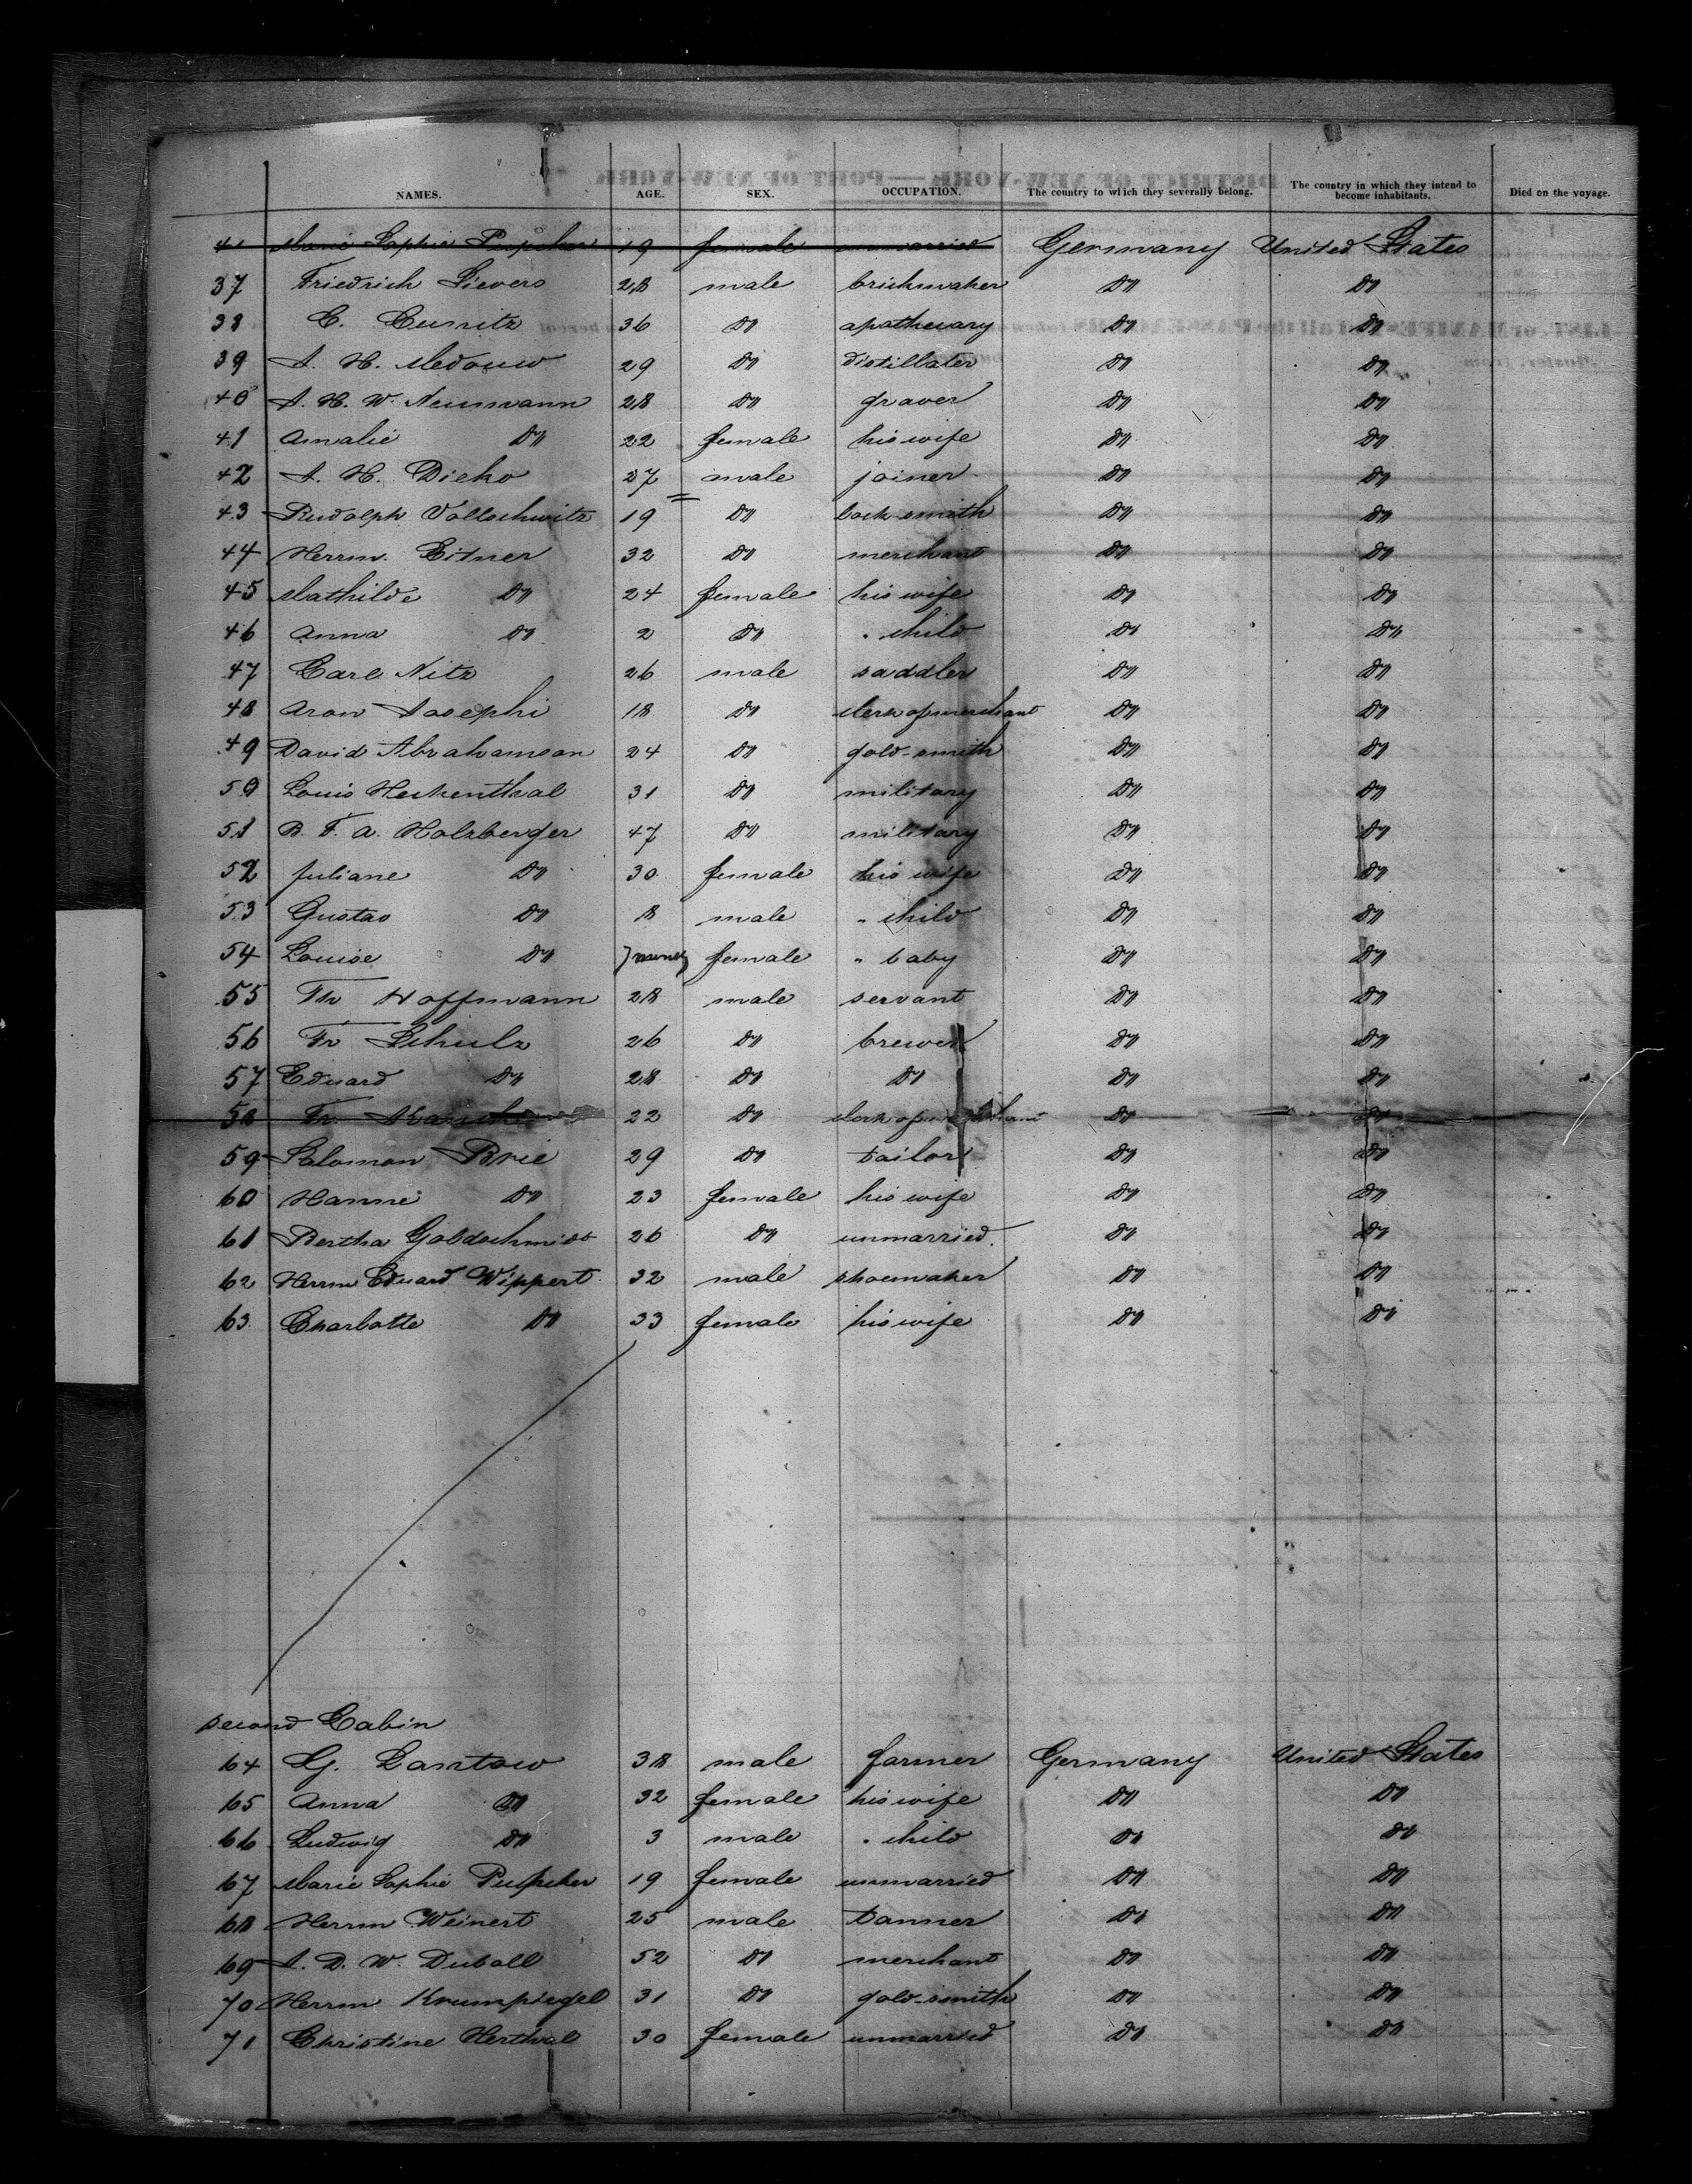 NAMES. AGE. SEX. OCCUPATION. The country to which they severally belong. The country in which they intend to become inhabitants. Died on the voyage.
41 Marie Sophie 19 female unmarried Germany United States
37 Friedrich Sievers 28 male brickmaker Do Do
38 C. 36 Do apothecary Do Do
39 J. H. Medouw 29 Do distillater Do Do
40 J. H. W. Neumann 28 Do graver Do Do
41 Amalie Do 22 female his wife Do Do
42 J. H. Dieko 27 male joiner Do Do
43 Rudolph Vollschwitz 19 Do lock-smith Do Do
44 Herrm. Eitner 32 Do merchant Do Do
45 Mathilde Do 24 female his wife Do Do
46 Anna Do 2 Do " child Do Do
47 Carl Nitz 26 male saddler Do Do
48 Aron Josephi 18 Do clerk of merchant Do Do
49 David Abrahamson 24 Do gold-smith Do Do
50 Louis Heckenthal 31 Do military Do Do
51 B. F. A. Holzberger 47 Do military Do Do
52 Juliane Do 30 female his wife Do Do
53 Gustav Do 8 male " child Do Do
54 Louise Do 7 female " baby Do Do
55 Th Hoffmann 28 male servant Do Do
56 Fr Schulz 26 Do brewer Do Do
57 Eduard Do 28 Do Do Do Do
58 Fr. 22 Do clerk of merchant Do Do
59 Salomon Brie 29 Do tailor Do Do
60 Hanne Do 23 female his wife Do Do
61 Bertha Goldschmidt 26 Do unmarried. Do Do
62 Herrm Eduard Wippert 32 male shoemaker Do Do
63 Charlotte Do 33 female his wife Do Do
second Cabin
64 G. Gantow 38 male farmer Germany United States
65 Anna Do 32 female his wife Do Do
66 Ludwig Do 3 male " child Do Do
67 Marie Sophie 19 female unmarried Do Do
68 Herrm Weinert 25 male tanner Do Do
69 J. D. W. Duball 52 Do merchant Do Do
70 Herrm Krumpiegel 31 Do gold-smith Do Do
71 Christine Herthal 30 female unmarried Do Do